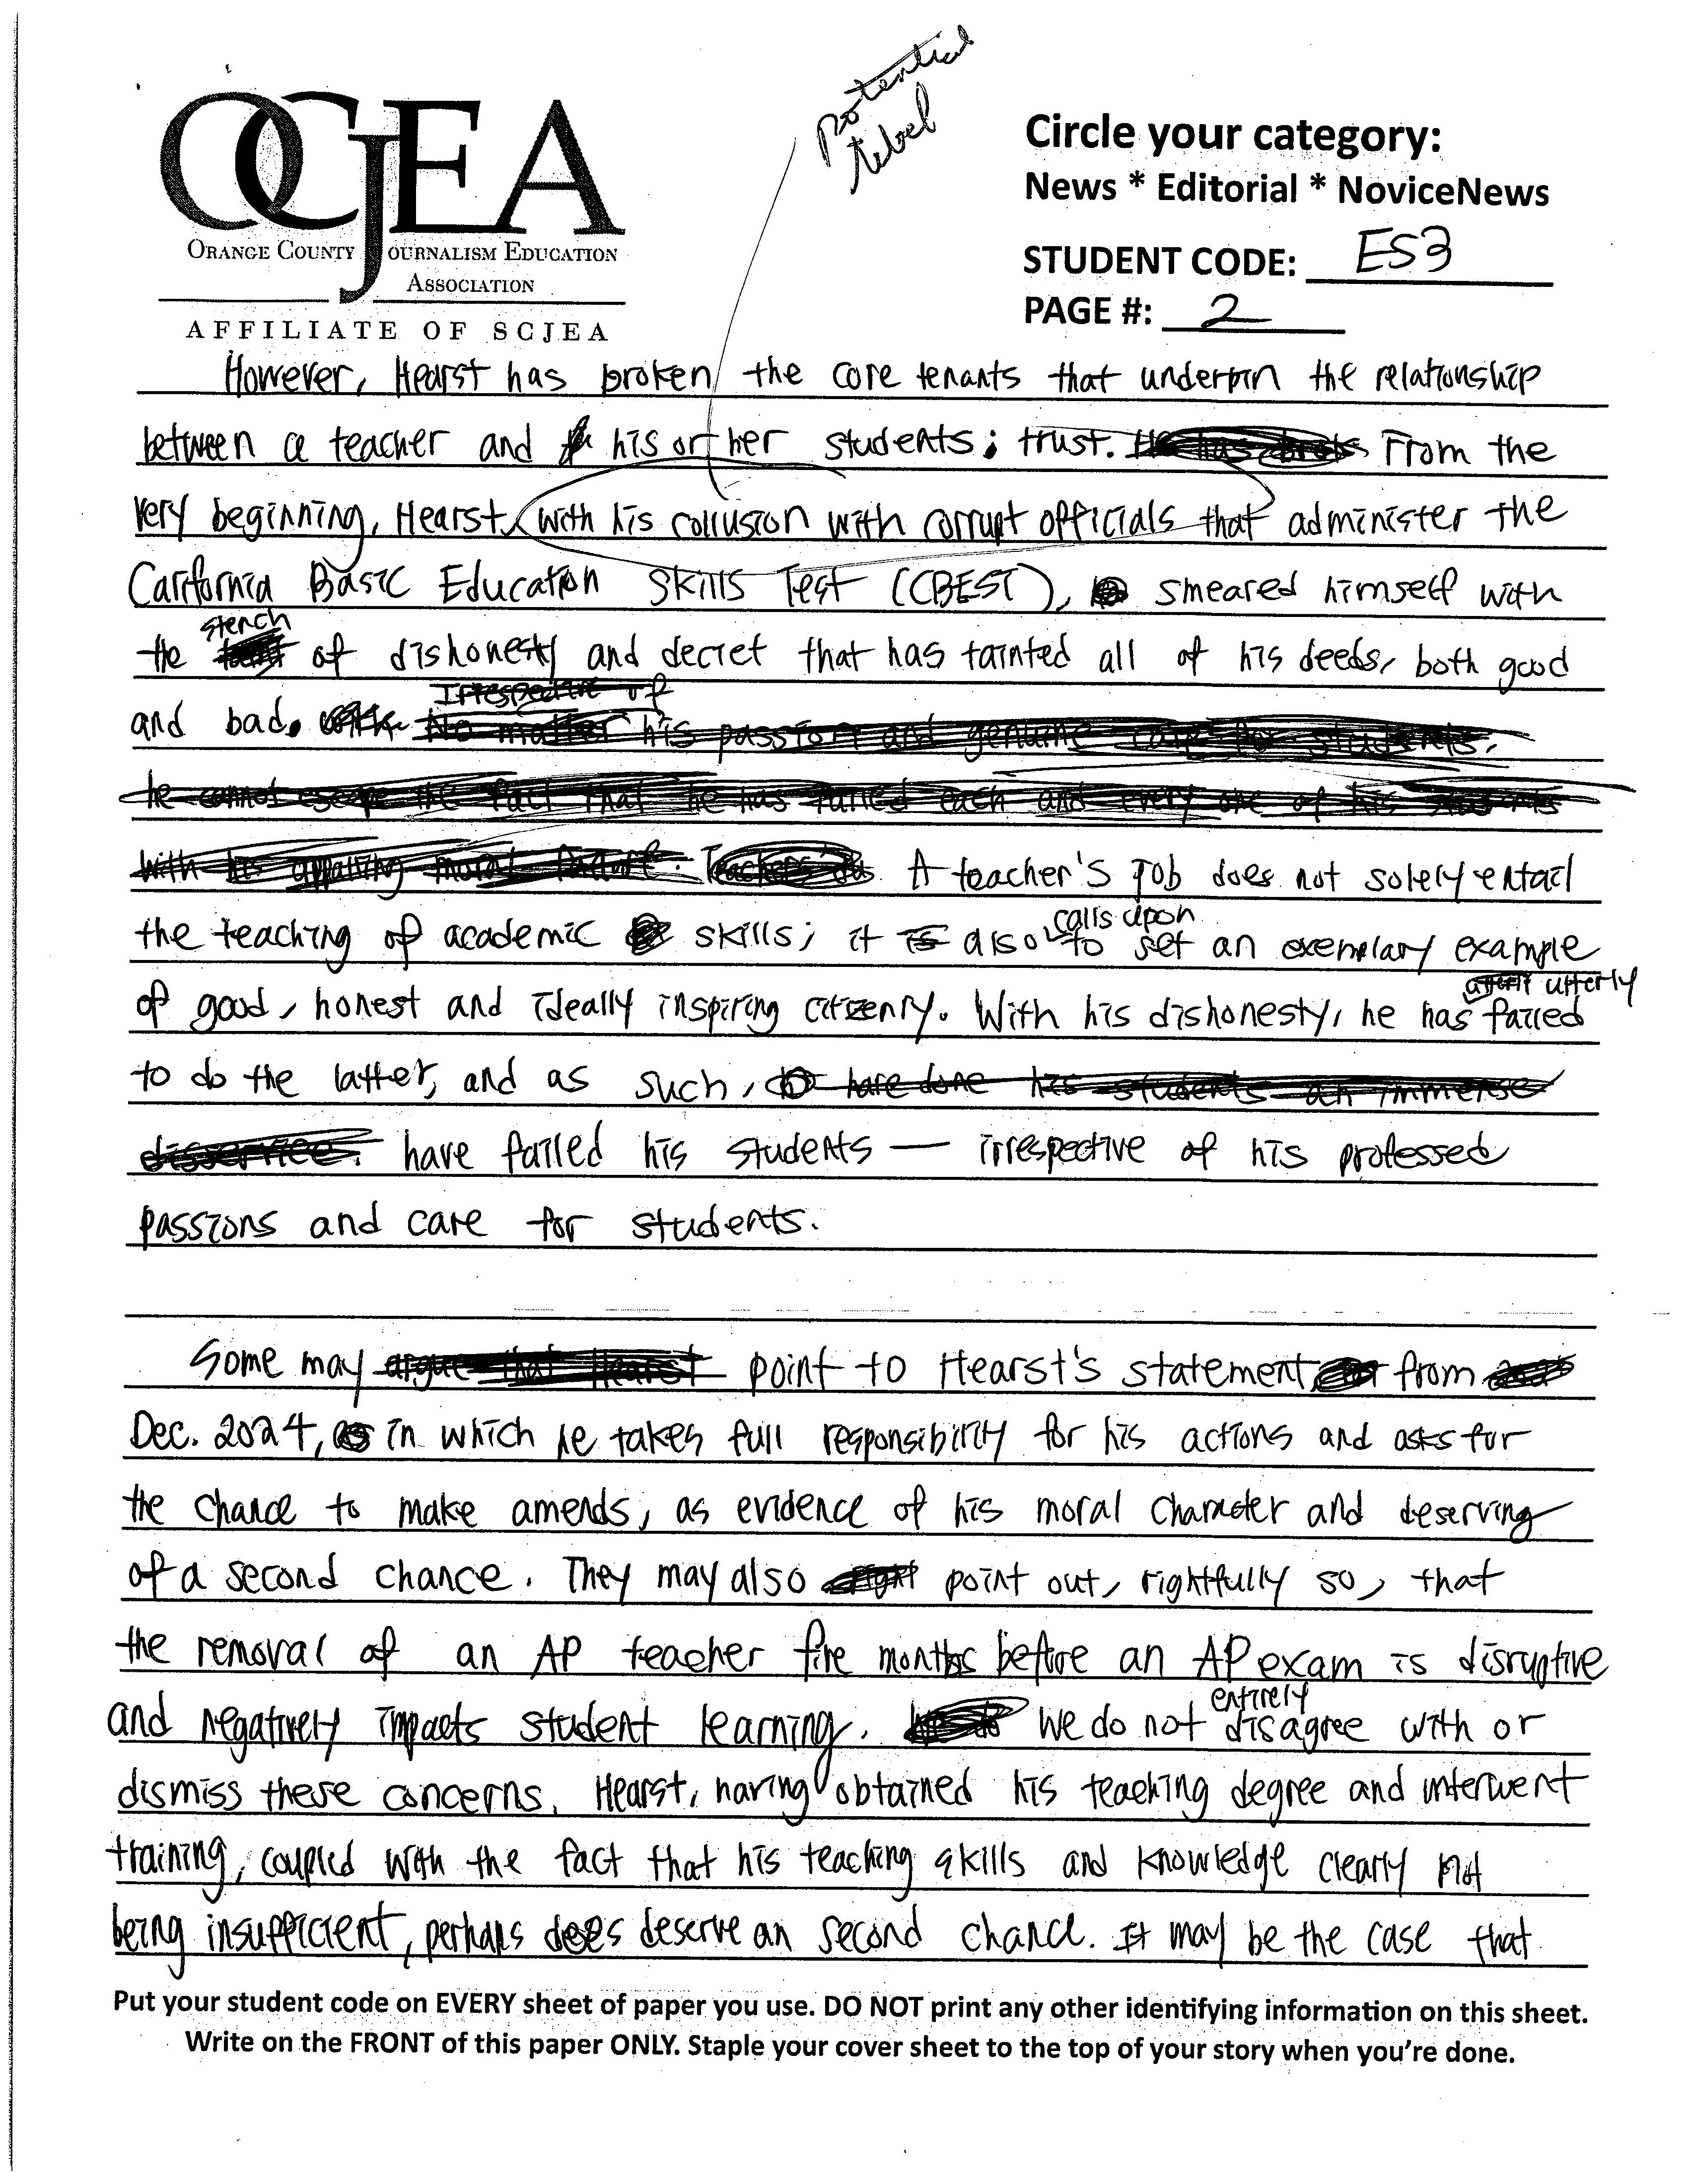 OCJEA
ORANGE COUNTY JOURNALISM EDUCATION
ASSOCIATION
AFFILIATE OF SCJEA
Potential
libel
Circle your category:
News * Editorial * NoviceNews
STUDENT CODE: ES3
PAGE #: 2
However, Hearst has broken the core tenants that underpin the relationship
between a teacher and his or her students; trust. He has broke From the
very beginning, Hearst, with his collusion with corrupt officials that administer the
California Basic Education Skills Test (CBEST), smeared himself with
stench
the taint of dishonesty and deceit that has tainted all of his deeds, both good
Irrespective of
and bad. No matter his passion and genuine care for students,
he cannot escape the fact that he has failed each and every one of his students
with his appalling moral failure. Teachers do A teacher's job does not solely entail
calls upon
the teaching of academic skills; it is also to set an exemplary example
utterly
of good, honest and ideally inspiring citizenry. With his dishonesty, he has failed
to do the latter, and as such, have done his students an immense
disservice. have failed his students — irrespective of his professed
passions and care for students.
Some may argue that Hearst point to Hearst's statement from
Dec. 2024, in which he takes full responsibility for his actions and asks for
the chance to make amends, as evidence of his moral character and deserving
of a second chance. They may also point out, rightfully so, that
the removal of an AP teacher five months before an AP exam is disruptive
entirely
and negatively impacts student learning. We do not disagree with or
dismiss these concerns. Hearst, having obtained his teaching degree and underwent
training, coupled with the fact that his teaching skills and knowledge clearly not
being insufficient, perhaps does deserve an second chance. It may be the case that
Put your student code on EVERY sheet of paper you use. DO NOT print any other identifying information on this sheet.
Write on the FRONT of this paper ONLY. Staple your cover sheet to the top of your story when you're done.